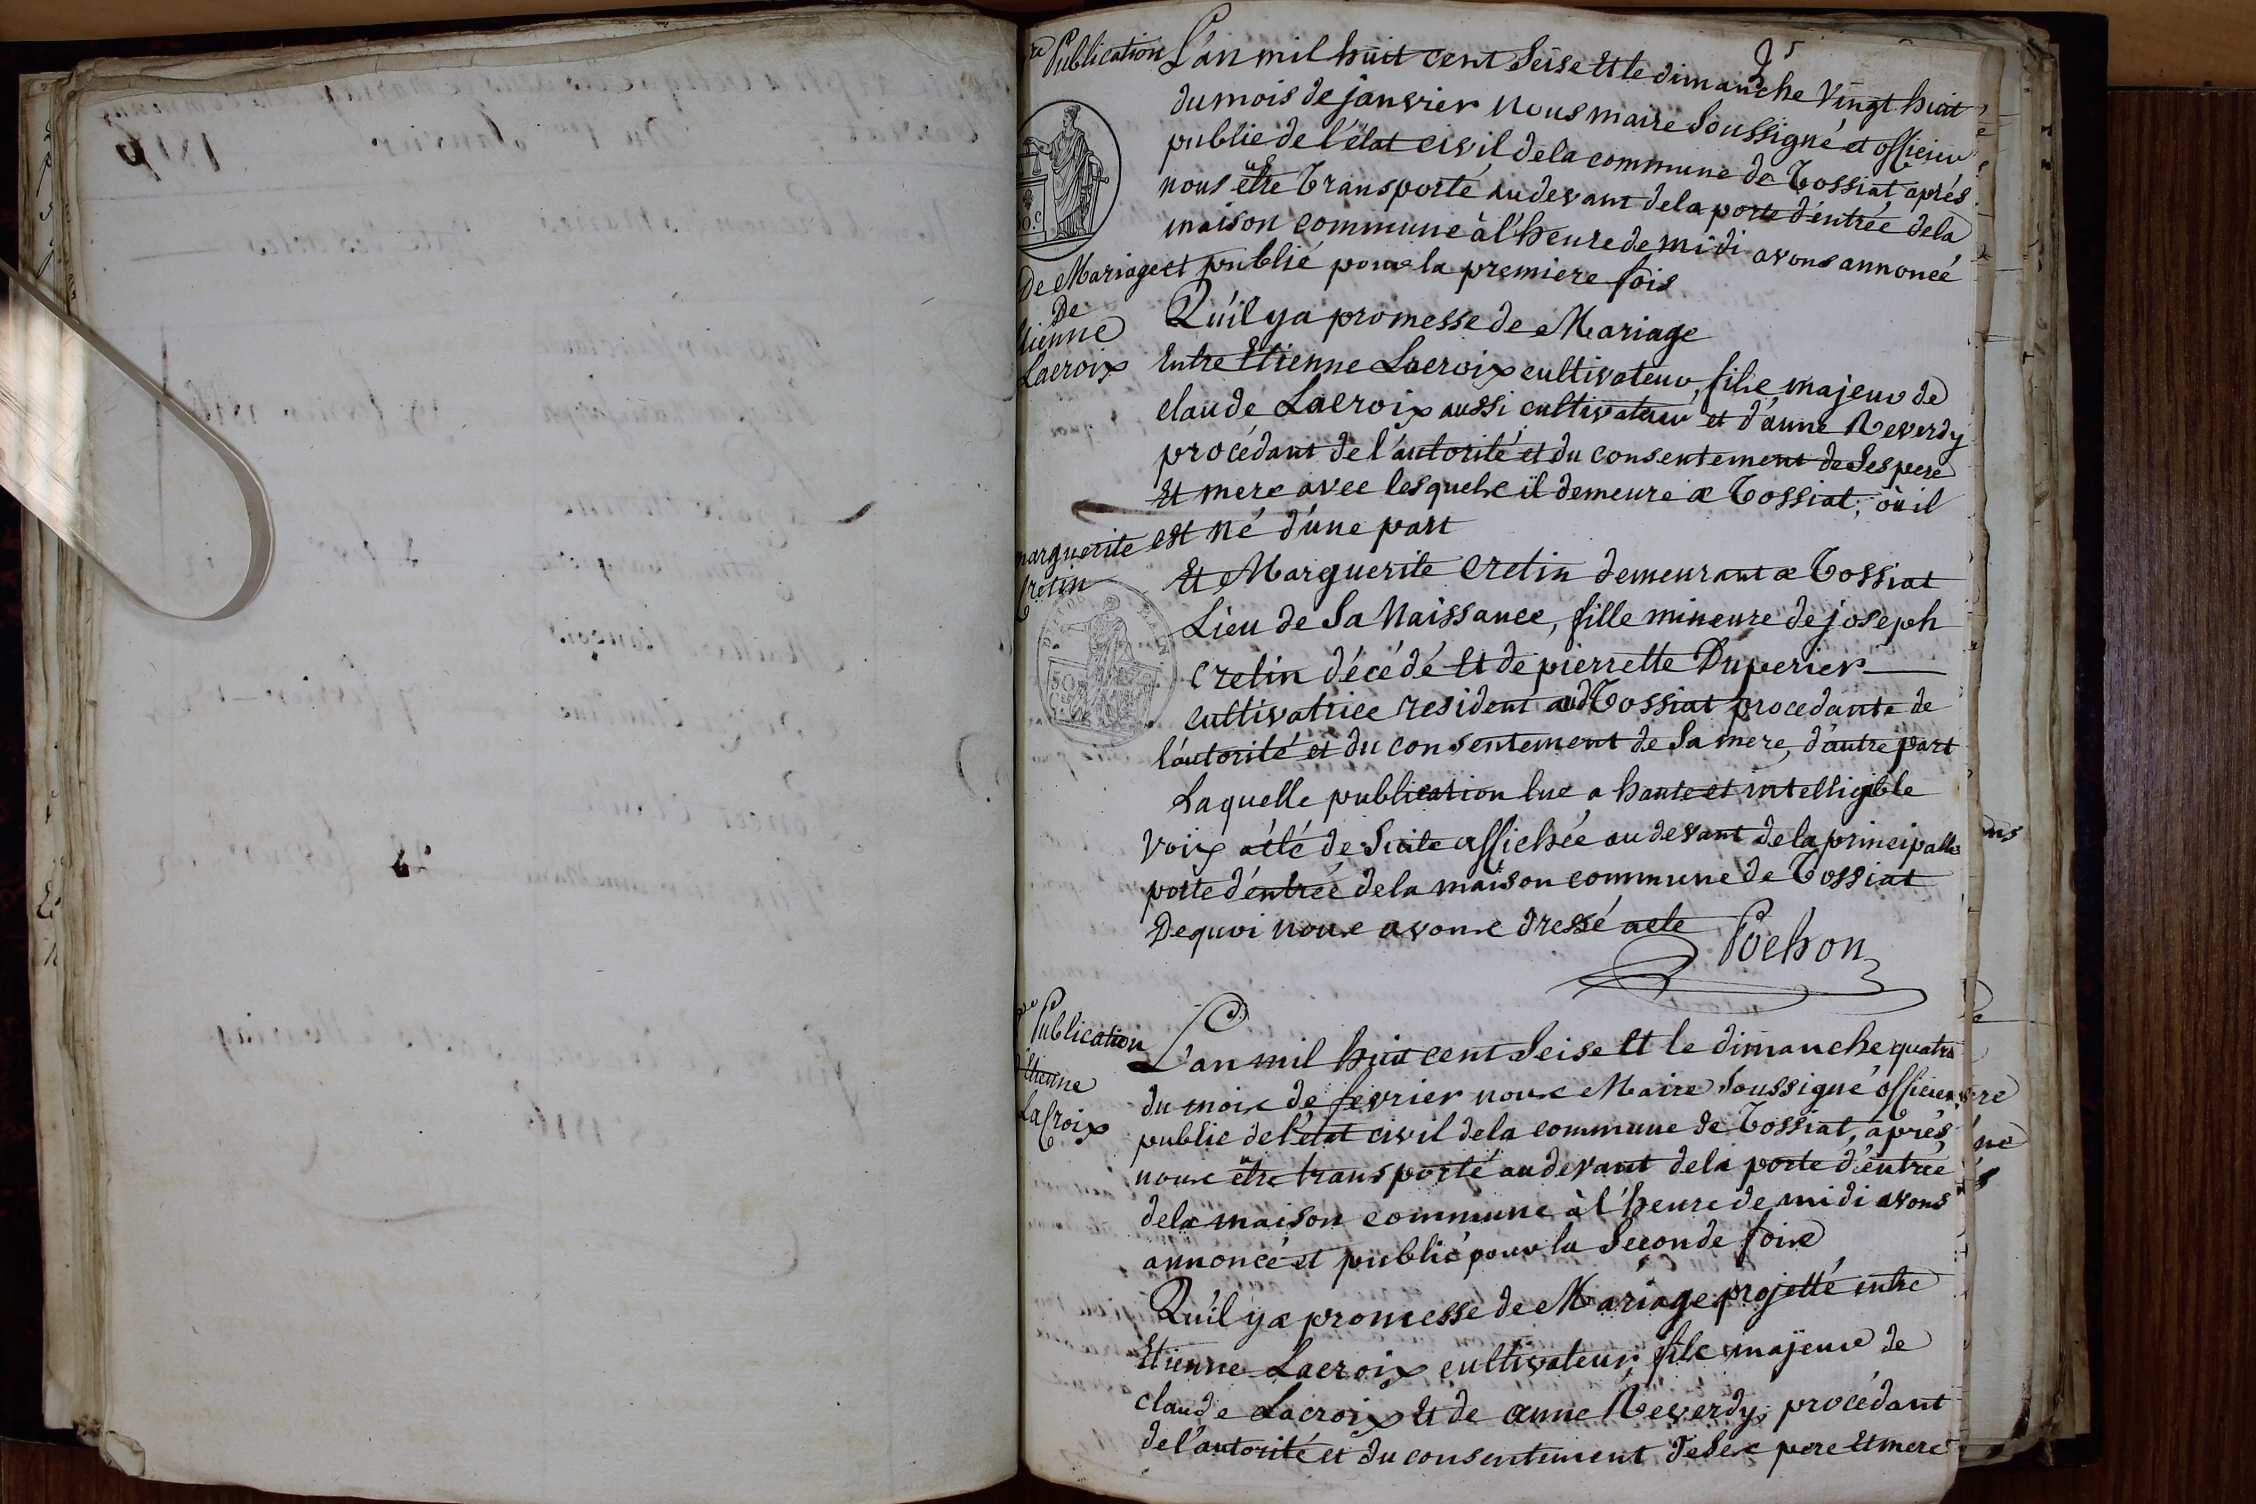 Publication
L'an mil huit cent Seise Et le dimanche vingt huit
du mois de janvier nous maire Soussigné et officier
publie de l'état civil dela commune de Tossiat, après
nous être Transporté au devant dela porte d'entrée dela
maison commune à l'heure de midi avons annoncé
et publié pour la premiere fois
De Mariage
De
Etienne
Lacroix
Qu'il y a promesse de Mariage
Entre Etienne Lacroix cultivateur, fils majeur de
claude Lacroix aussi cultivateur et d'anne Reverdy
procédant de l'autorité et du consentement de Ses pere
Et mere avec lesquels il demeure a Tossiat, où il
est né d'une part
marguerite
Cretin
Et Marguerite Cretin demeurant a Tossiat
Lieu de Sa Naissance, fille mineure de joseph
Cretin décédé Et de pierrette Duperier
cultivatrice resident aud Tossiat procedante de
l'autorité et du consentement de Sa mere, d'autre part
Laquelle publication lue a haute et intelligible
voix a été de Suite affichée au devant dela principalle
porte d'entrée dela maison commune de Tossiat
Dequoi nous avons dressé acte
Pochon
Publication
d'Etienne
LaCroix
L'an mil huit cent Seise Et le dimanche quatre
du mois de fevrier nous Maire Soussigné officier
public de l'état civil dela commune de Tossiat, après
nous être transporté au devant dela porte d'entrée
dela maison commune à l'heure de midi avons
annoncé et publié pour la Seconde fois
Qu'il y a promesse de Mariage projetté entre
Etienne Lacroix cultivateur, fils majeur de
claude Lacroix Et de anne Reverdy, procédant
de l'autorité et du consentement de Ses pere Et mere